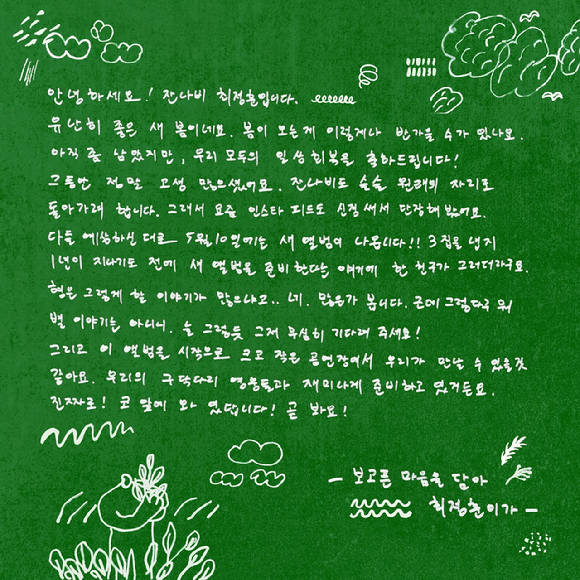 안녕하세요! 잔나비 최정훈입니다.
유난히 좋은 새 봄이네요. 봄이 오는게 이렇게나 반가울 수가 있나요.
아직 좀 남았지만, 우리 모두의 일상회복을 축하드립니다!
그동안 정말 고생 많으셨어요. 잔나비도 슬슬 원래의 자리로
돌아가려 합니다. 그래서 요즘 인스타 피드도 신경써서 단장해 봤어요.
다들 예상하신 대로 5월10일에는 새 앨범이 나옵니다!! 3집을 낸지
1년이 지나기도 전에 새 앨범을 준비한다는 얘기에 한 친구가 그러더라구요.
형은 그렇게 할 이야기가 많으냐고.. 네. 많은가 봅니다. 근데 그렇다구 뭐
별 이야기는 아니니. 늘 그렇듯 그저 무심히 기다려 주세요!
그리고 이 앨범을 시작으로 크고 작은 공연장에서 우리가 만날 수 있을것
같아요. 우리의 구닥다리 영웅들과 재미나게 준비하고 있거든요.
진짜로! 코 앞에 와 있답니다! 곧 봐요!
– 보고픈 마음을 담아
최정훈이가 –